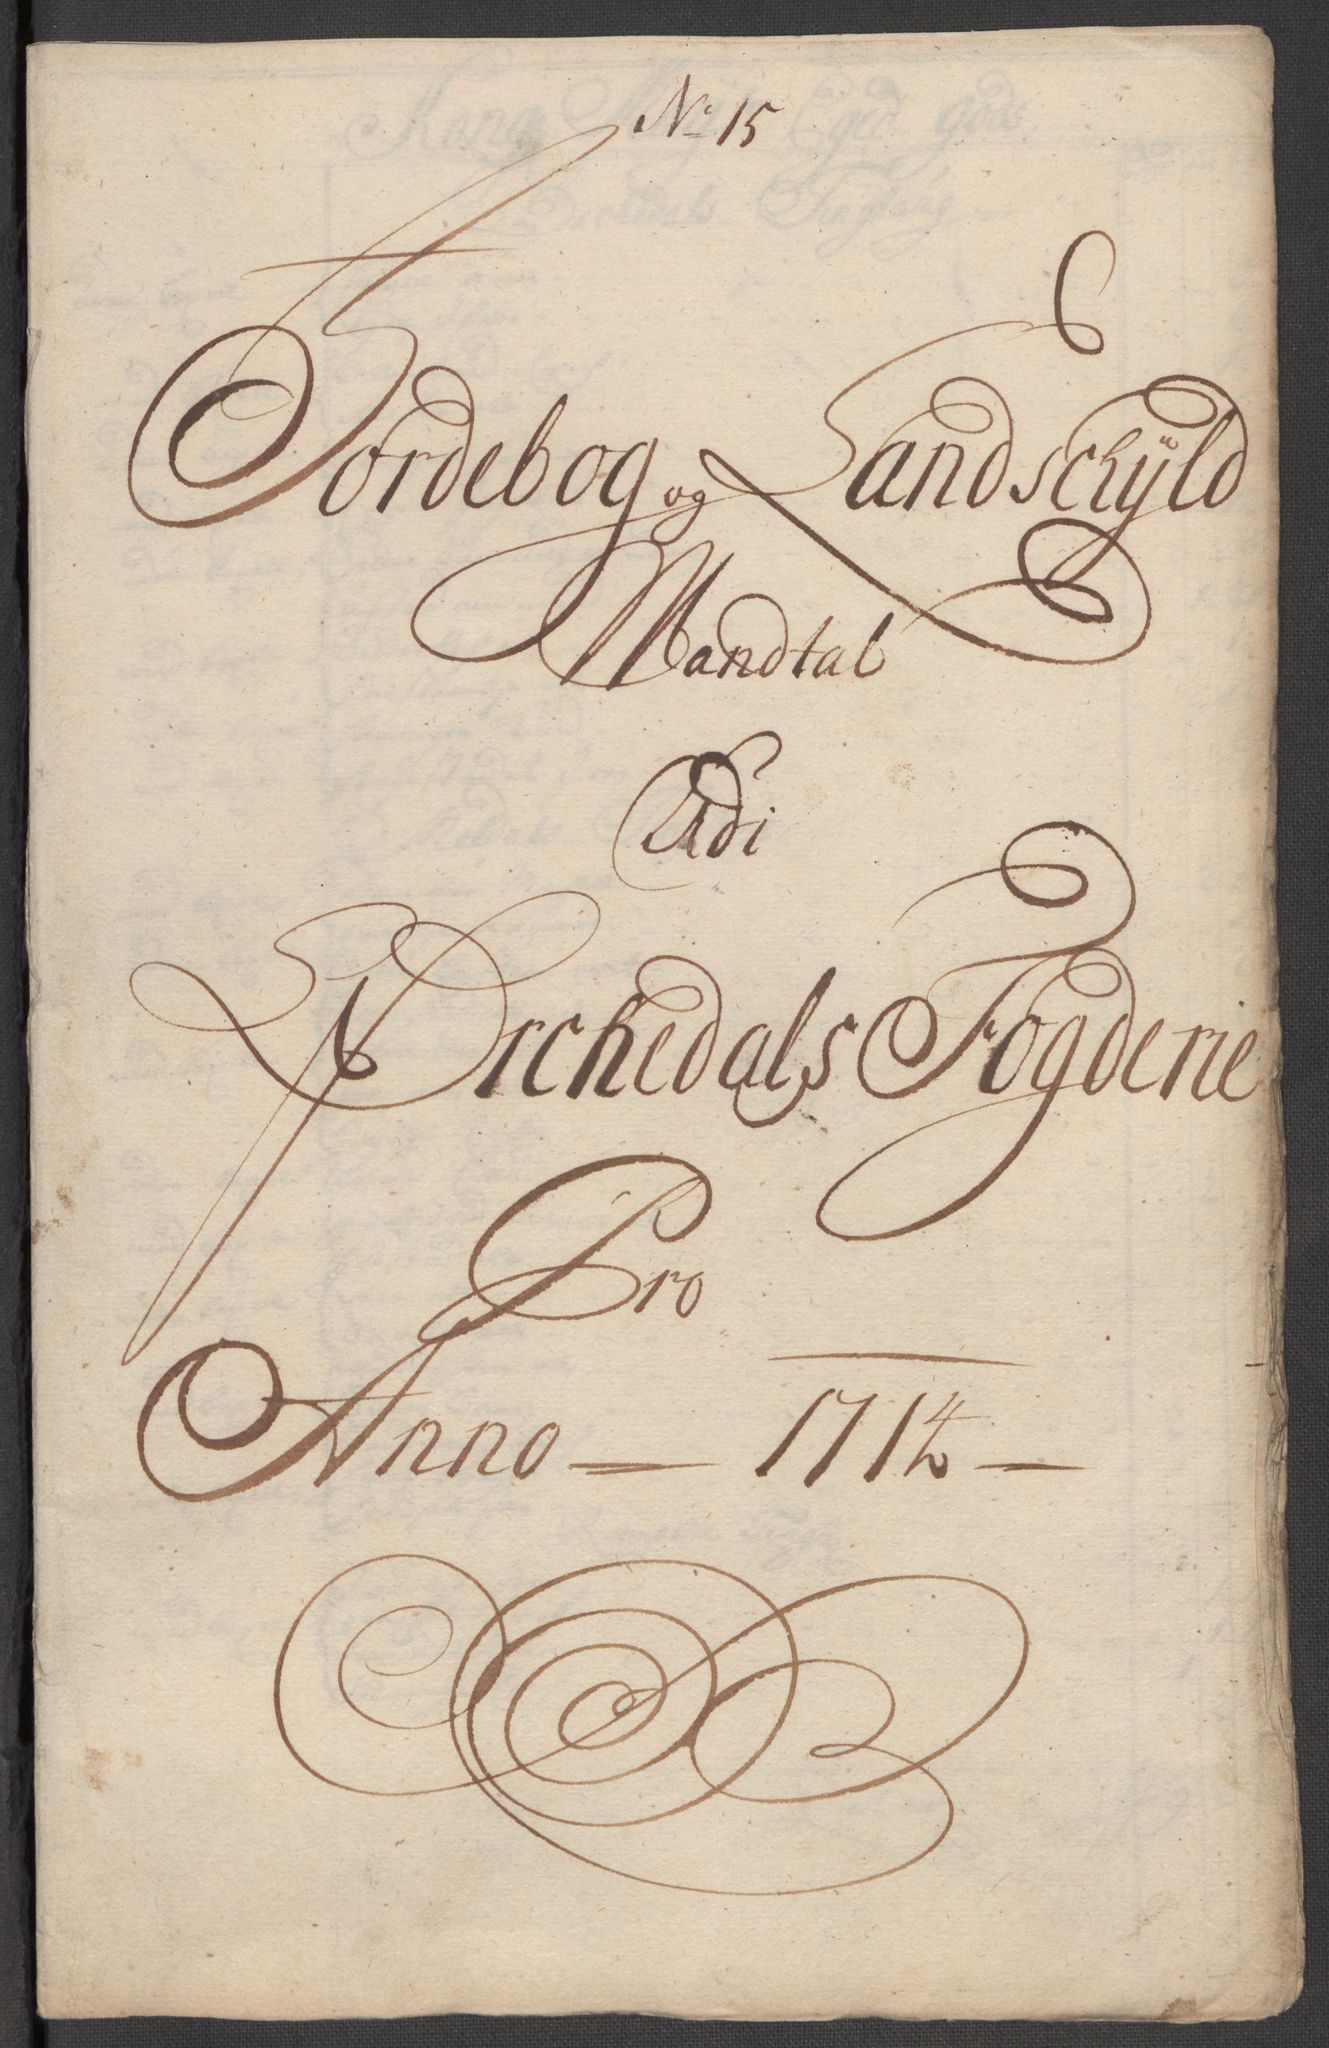 No 15
Jordebog og Landschÿld
Mandtal
Udi
Orchedals Fogderie
Pro
Anno 1714